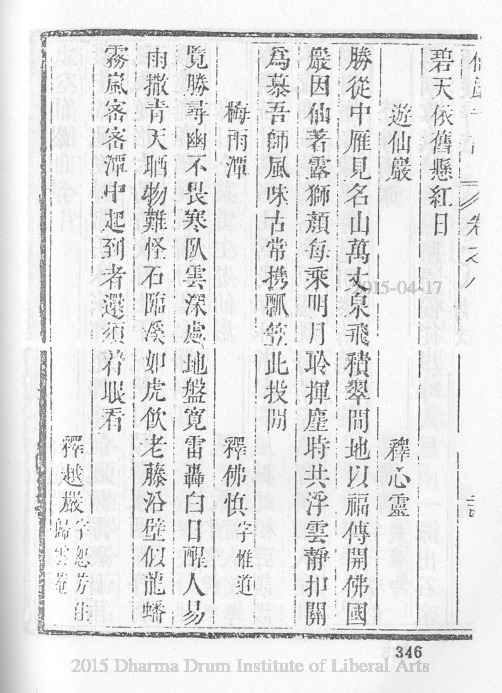 卷之八
碧天依舊懸紅日
遊仙巖　釋心靈
勝從中雁見名山萬丈泉飛積翠間地以福傳開佛國
巖因仙著露獅顏每乘明月聆揮麈時共浮雲靜扣關
爲慕吾師風味古常携瓢笠此投閒
梅雨潭　釋佛慎字惟道
覽勝尋幽不畏寒臥雲深處地盤寬雷轟白日醒人易
雨撒青天晒物難怪石臨溪如虎飲老藤沿壁似龍蟠
霧嵐密密潭中起到者還須着眼看
釋越嚴字恕芳住歸雲菴
2015-04-17
346
2015 Dharma Drum Institute of Liberal Arts